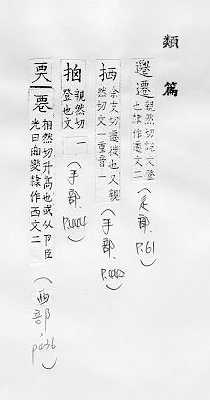 類篇
親然切說文登也隸作遷文二(辵部.P.61)
拪 余支切遷徙也又親然切文一重音一(手部.P.442)
親然切登也文一(手部.P.444)
相然切升高也或从卩臣光曰䙴變隸作覀文二(部.